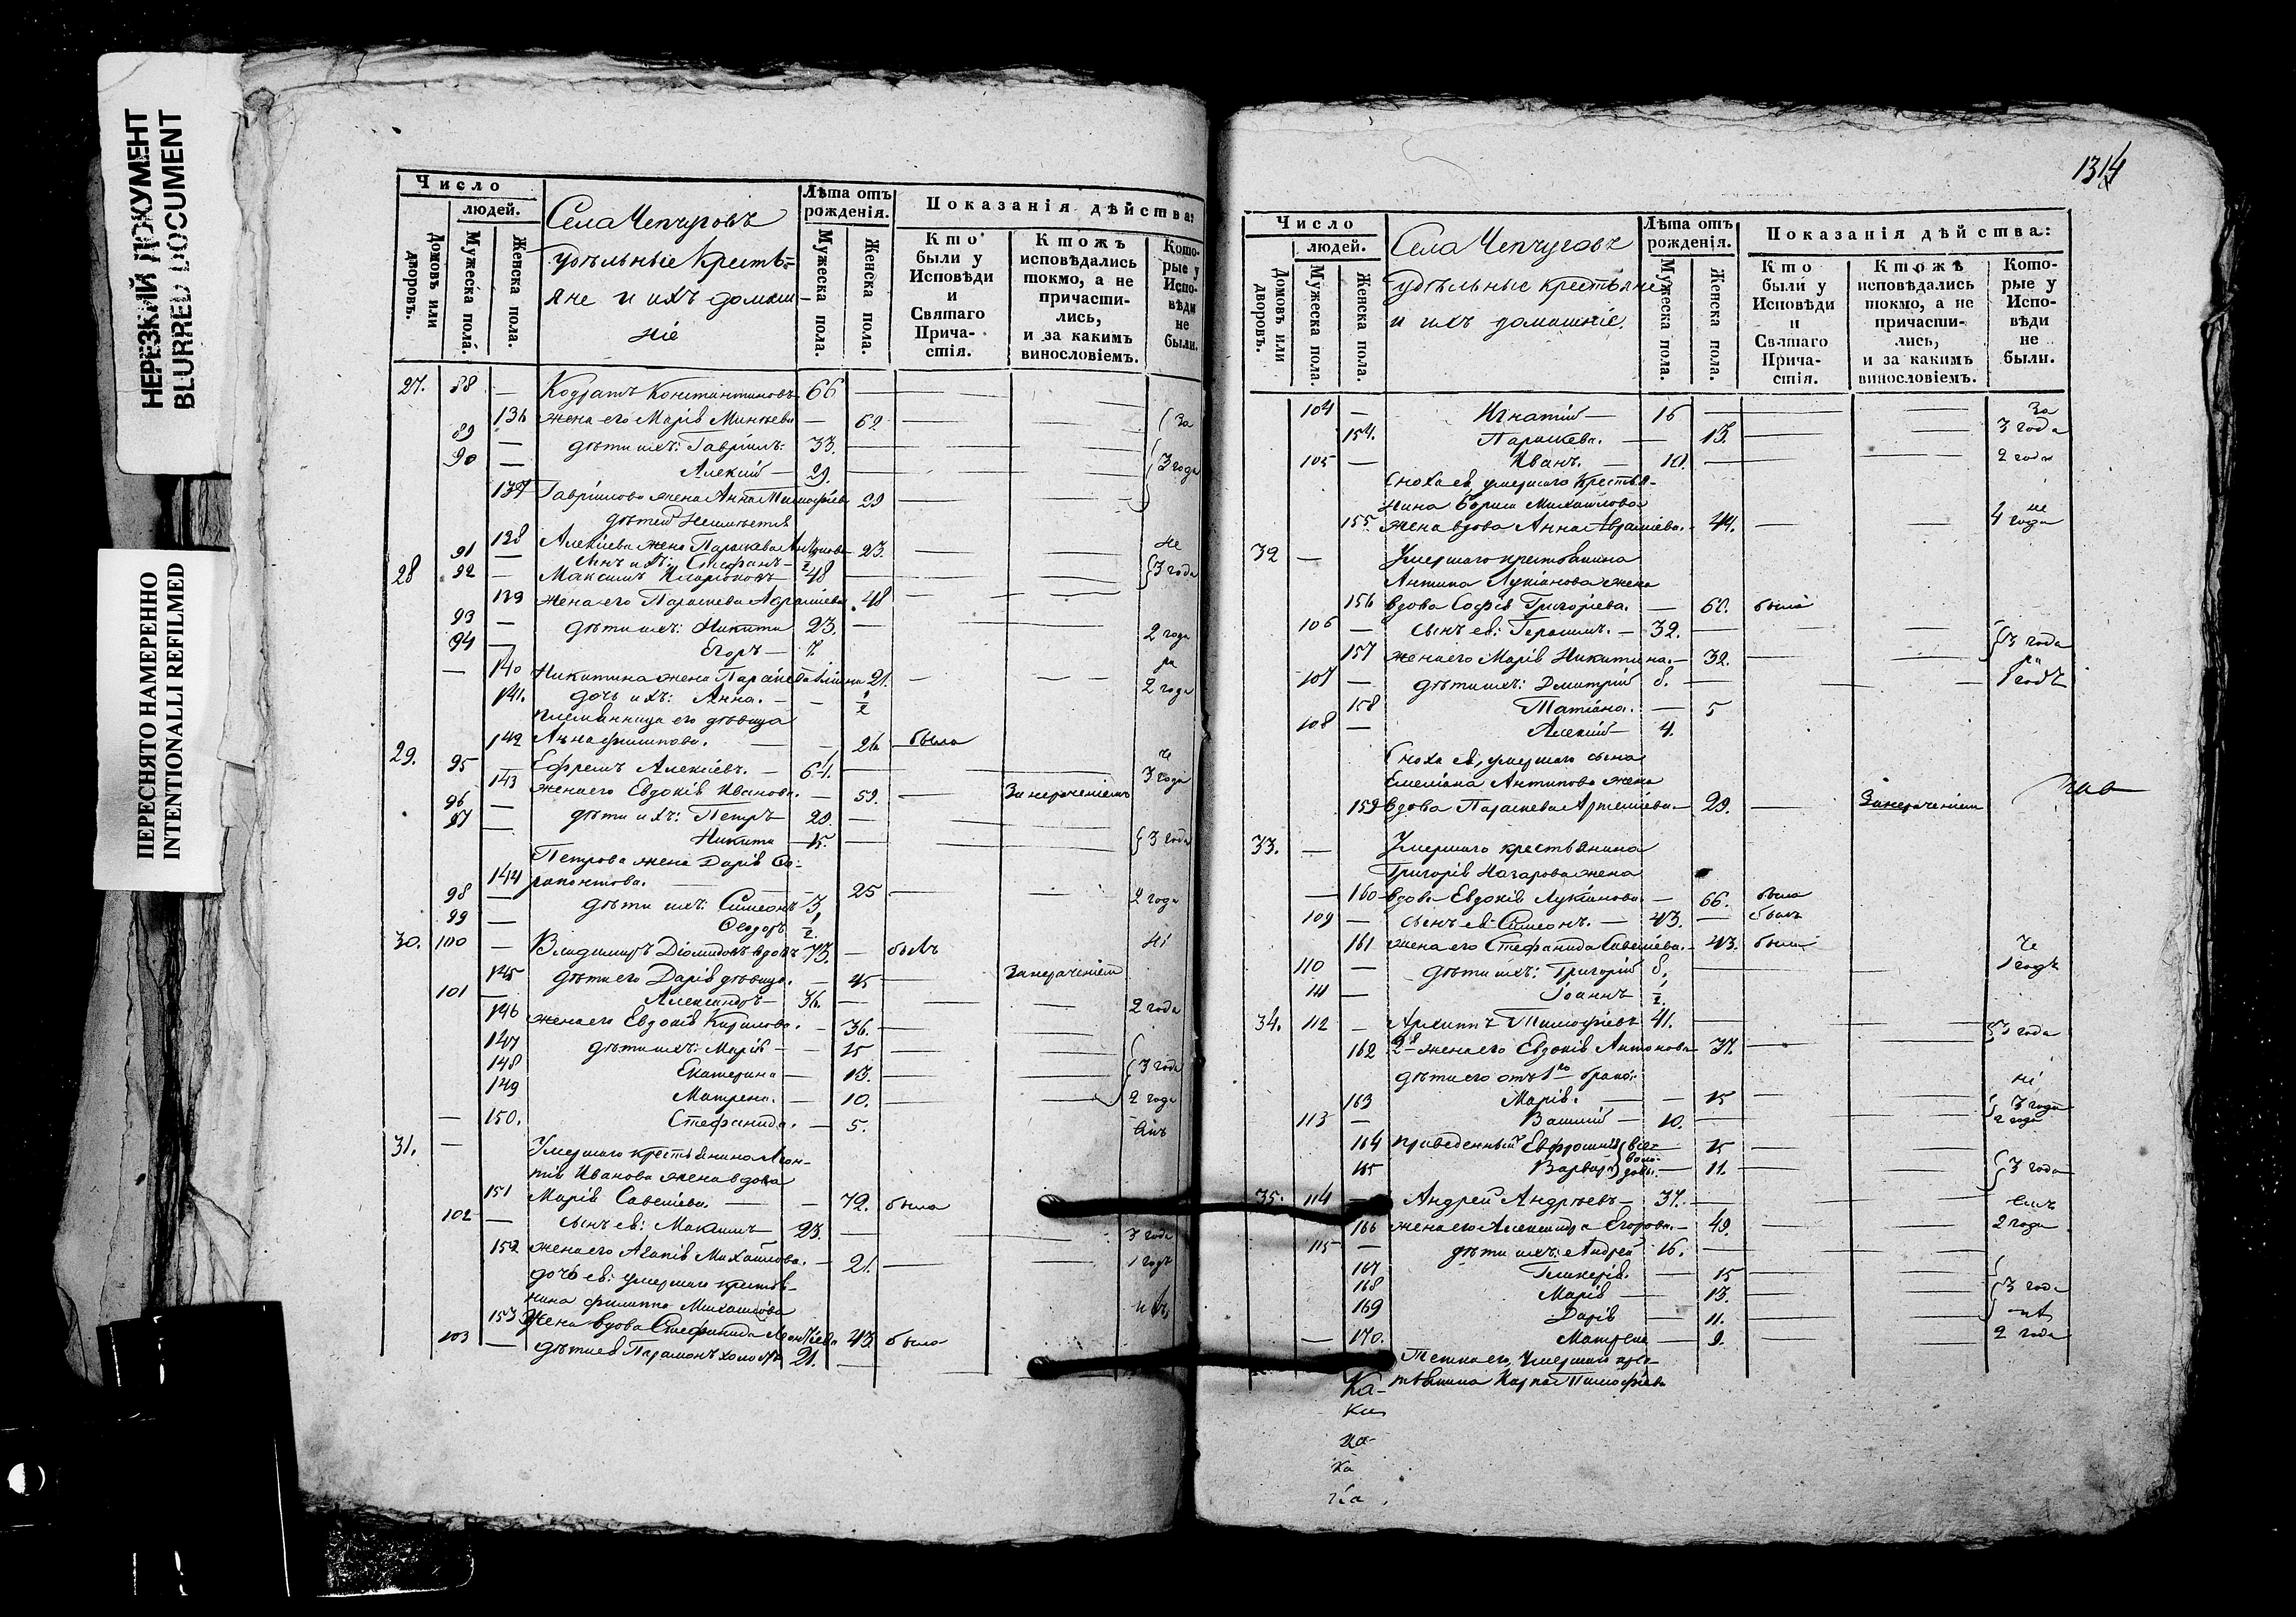 НЕРЕЗКИЙ ДОКУМЕНТ
BLURRED DOCUMENT
ПЕРЕСНЯТО НАМЕРЕННО
INTENTIONALLI REFILMED
Число
людей.
Домовъ или дворовъ.
Мужеска пола.
Женска пола.
Села Чепчуговъ
удѣльные кресть=
яне и ихъ домаш-
ніе
Лѣта отъ рожденія.
Мужеска пола.
Женска пола.
Показанія дѣйства:
Кто были у Исповѣди и Святаго Прича-стія.
Ктожъ исповѣдались токмо, а не причасти-лись, и за какимъ винословіемъ.
Кото-рые у Испо-вѣди не были.
27. 88 — Кодратъ Константиновъ 66 —
136 жена его Марія — 62
89 — дѣти ихъ: Гавріилъ. 33.
90 — Алексій — 29. 3 года
137 Гавріилова жена Анна Тимофеева 29
дѣтей неимеется
138 Алексіева жена Параскева 23
91 — сынъ ихъ: Стефанъ — ½
28 92 — Максимъ Иларіоновъ 48 3 года
139 жена его Параскева 48
93 — дѣти ихъ: Никита 23.
94 — Егоръ — 7. 2 года
140 Никитина жена 21.
141. дочь ихъ: Анна. — ½ 2 года
племянница его дѣвица
142 Анна Филипова. — 26 была
29. 95 — Ефремъ Алексіевъ. — 64. 3 года
143 жена его Евдокія Иванова. — 59. — За нераченіемъ
96 — дѣти ихъ: Петръ 20. —
97 — Никита — 15. 3 года
Петрова жена Дарія Са-
144 рапонтова. — 25
98 — дѣти ихъ: Симеонъ 3 2 года
99 — Ѳеодоръ ½
30. 100 — Владимиръ Діомидовъ вдовъ 73. — былъ
145 дѣти его Дарія дѣвица. — 45 — За нераченіемъ
101 — Александръ — 36. — 2 года
146 жена его Евдокія Кирилова. — 36.
147 дѣти ихъ: Марія — 15
148 Екатерина — 13. 3 года
149 Матрена. — 10. 2 года
— 150. Стефанида. — 5.
31. — Умершаго крестьянина Леон-
тія Иванова жена вдова
151 Марія Савеліева. — 72. была
102 — сынъ ея: Максимъ 23. 3 года
152 жена его Агапія Михайлова. — 21. — 1 годъ
дочь ея: умершаго крестья-
нина Филиппа Михайлова
153 жена вдова Стефанида Леонтіева 43 была
103 — дѣти ея Парамонъ холостъ 21. —
1314
Число
людей.
Домовъ или дворовъ.
Мужеска пола.
Женска пола.
Села Чепчуговъ
удѣльные крестьяне
и ихъ домашніе.
Лѣта отъ рожденія.
Мужеска пола.
Женска пола.
Показанія дѣйства:
Кто были у Исповѣди и Святаго Прича-стія.
Ктожъ исповѣдались токмо, а не причасти-лись, и за какимъ винословіемъ.
Кото-рые у Испо-вѣди не были.
104 — Игнатій — 16 3 года
154. Параскева. — 13.
105 — Иванъ. — 10. 2 года
Сноха ея, умершаго крестья-
нина Бориса Михайлова
155 жена вдова Анна 44. — 4 года
32 — Умершаго крестьянина
Антипа Лукіанова жена
156 вдова Софія Григоріева. — 60. была
106 — сынъ ея: Герасимъ. — 32. 3 года
157 жена его Марія Никитина. — 32.
107 — дѣти ихъ: Дмитрій 8. 1 годъ
158 Татіана. — 5
108 — Алексій 4.
Сноха ея, умершаго сына
Емеліана Антипова жена
159 вдова Параскева Артеміева — 29. — За нераченіемъ
33. — Умершаго крестьянина
Григорія Назарова жена
— 160 вдова Евдокія Лукіанова — 66. была
109 — сынъ ея Симеонъ. — 43. — былъ
161 жена его Стефанида Савеліева. 43. была
110 — дѣти ихъ: Григорій 8. 1 годъ
111 — Іоаннъ ½
34. 112 — Архиппъ Тимофіевъ 41. 3 года
162 2я жена его Евдокія Антонова 37.
дѣти его отъ 1го брака:
163 Марія. — 15 3 года
113 — Василій — 10. 2 года
164 приведенныя Евфросинія — 15
165 Варвара — 11. 3 года
35. 114 — Андрей Андреевъ — 37.
166 жена его Александра Егорова. — 49. 2 года
115 — дѣти ихъ: Андрей 16.
167 Гликерія. — 15
168 Марія — 13. 3 года
169 Дарія — 11.
— 170. Матрена — 9. 2 года
Тетка его, умершаго кре-
стьянина Карпа Тимофіева
Ка-